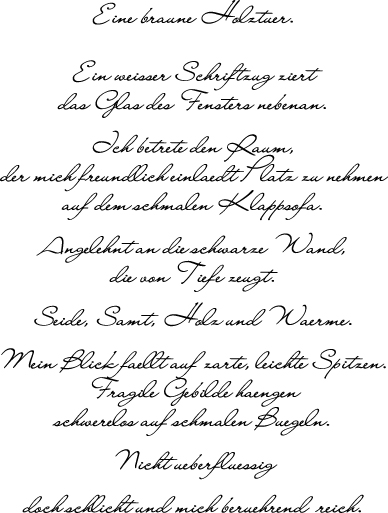 Eine braune Holztuer.
Ein weisser Schriftzug ziert
das Glas des Fensters nebenan.
Ich betrete den Raum,
der mich freundlich einlaedt Platz zu nehmen
auf dem schmalen Klappsofa.
Angelehnt an die schwarze Wand,
die von Tiefe zeugt.
Seide, Samt, Holz und Waerme.
Mein Blick faellt auf zarte, leichte Spitzen.
Fragile Gebilde haengen
schwerelos auf schmalen Buegeln.
Nicht ueberfluessig
doch schlicht und mich beruehrend reich.